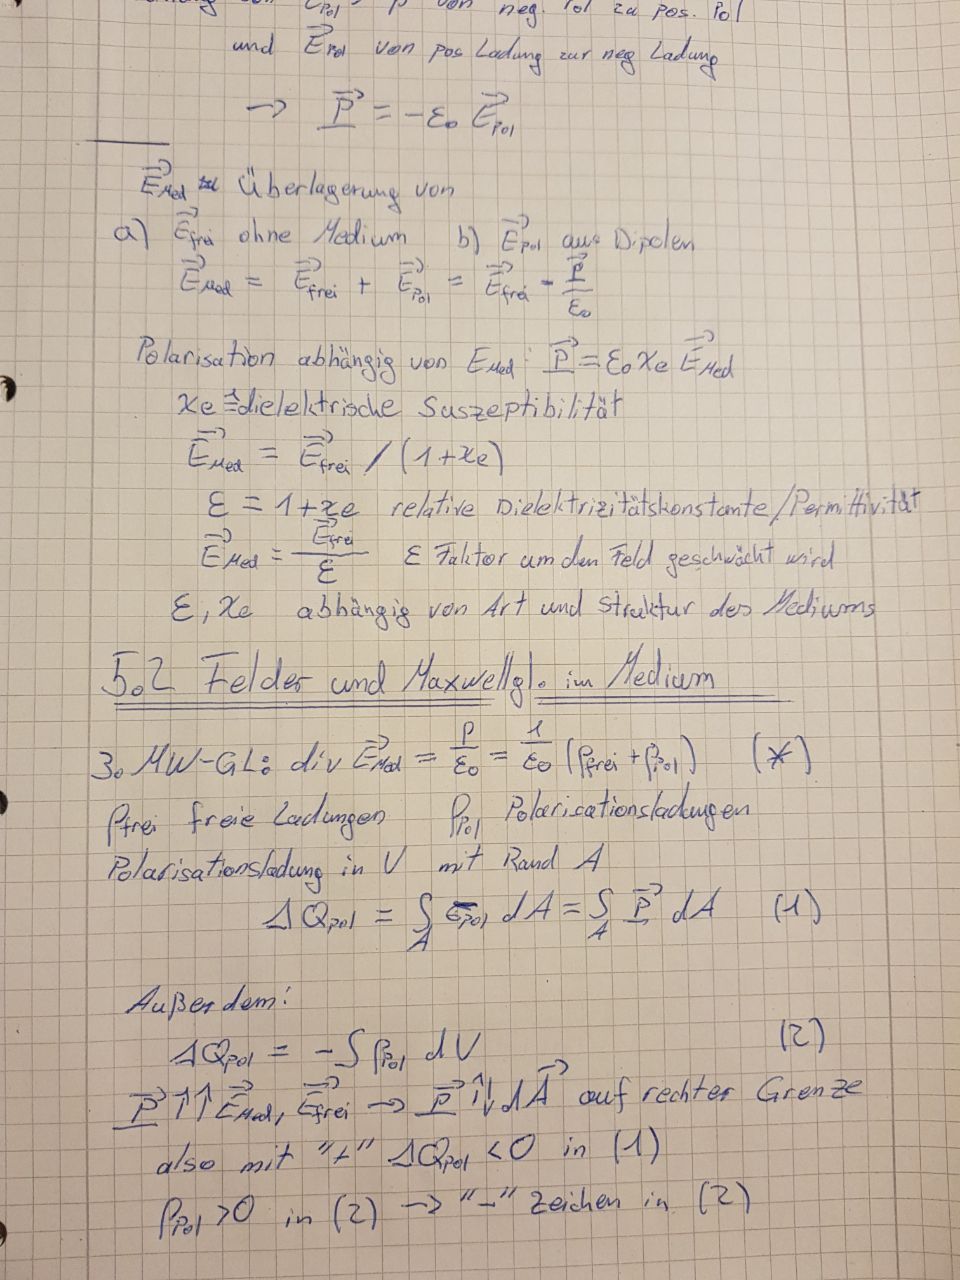 von neg. Pol zu pos. Pol
und E⃗_Pol von pos Ladung zur neg Ladung
→ P⃗ = -ε₀ E⃗_Pol
E⃗_Med Überlagerung von
a) E⃗_frei ohne Medium b) E⃗_Pol aus Dipolen
E⃗_Med = E⃗_frei + E⃗_Pol = E⃗_frei - P⃗/ε₀
Polarisation abhängig von E_Med: P⃗ = ε₀ χe E⃗_Med
χe ≙ dielektrische Suszeptibilität
E⃗_Med = E⃗_frei / (1+χe)
ε = 1+χe relative Dielektrizitätskonstante/Permittivität
E⃗_Med = E⃗_frei/ε ε Faktor um den Feld geschwächt wird
ε, χe abhängig von Art und Struktur des Mediums
5.2 Felder und Maxwellgl. im Medium
3. MW-GL: div E⃗_Med = ρ/ε₀ = 1/ε₀ (ρ_frei + ρ_Pol) (*)
ρ_frei freie Ladungen ρ_Pol Polarisationsladungen
Polarisationsladung in V mit Rand A
ΔQ_Pol = ∫_A σ_Pol dA = ∫_A P⃗ dA (1)
Außerdem:
ΔQ_Pol = -∫ρ_Pol dV (2)
P⃗ ↑↑ E⃗_Med, E⃗_frei → P⃗ ↑↓ dA⃗ auf rechter Grenze
also mit "+" ΔQ_Pol < 0 in (1)
ρ_Pol > 0 in (2) → "-" zeichen in (2)